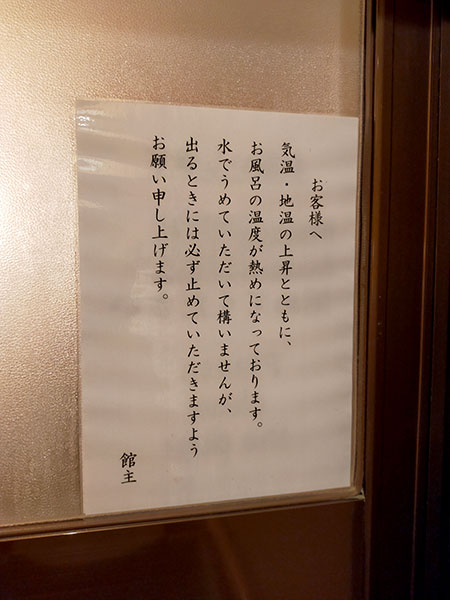 お客様へ
気温・地温の上昇とともに、
お風呂の温度が熱めになっております。
水でうめていただいて構いませんが、
出るときには必ず止めていただきますよう
お願い申し上げます。
館主